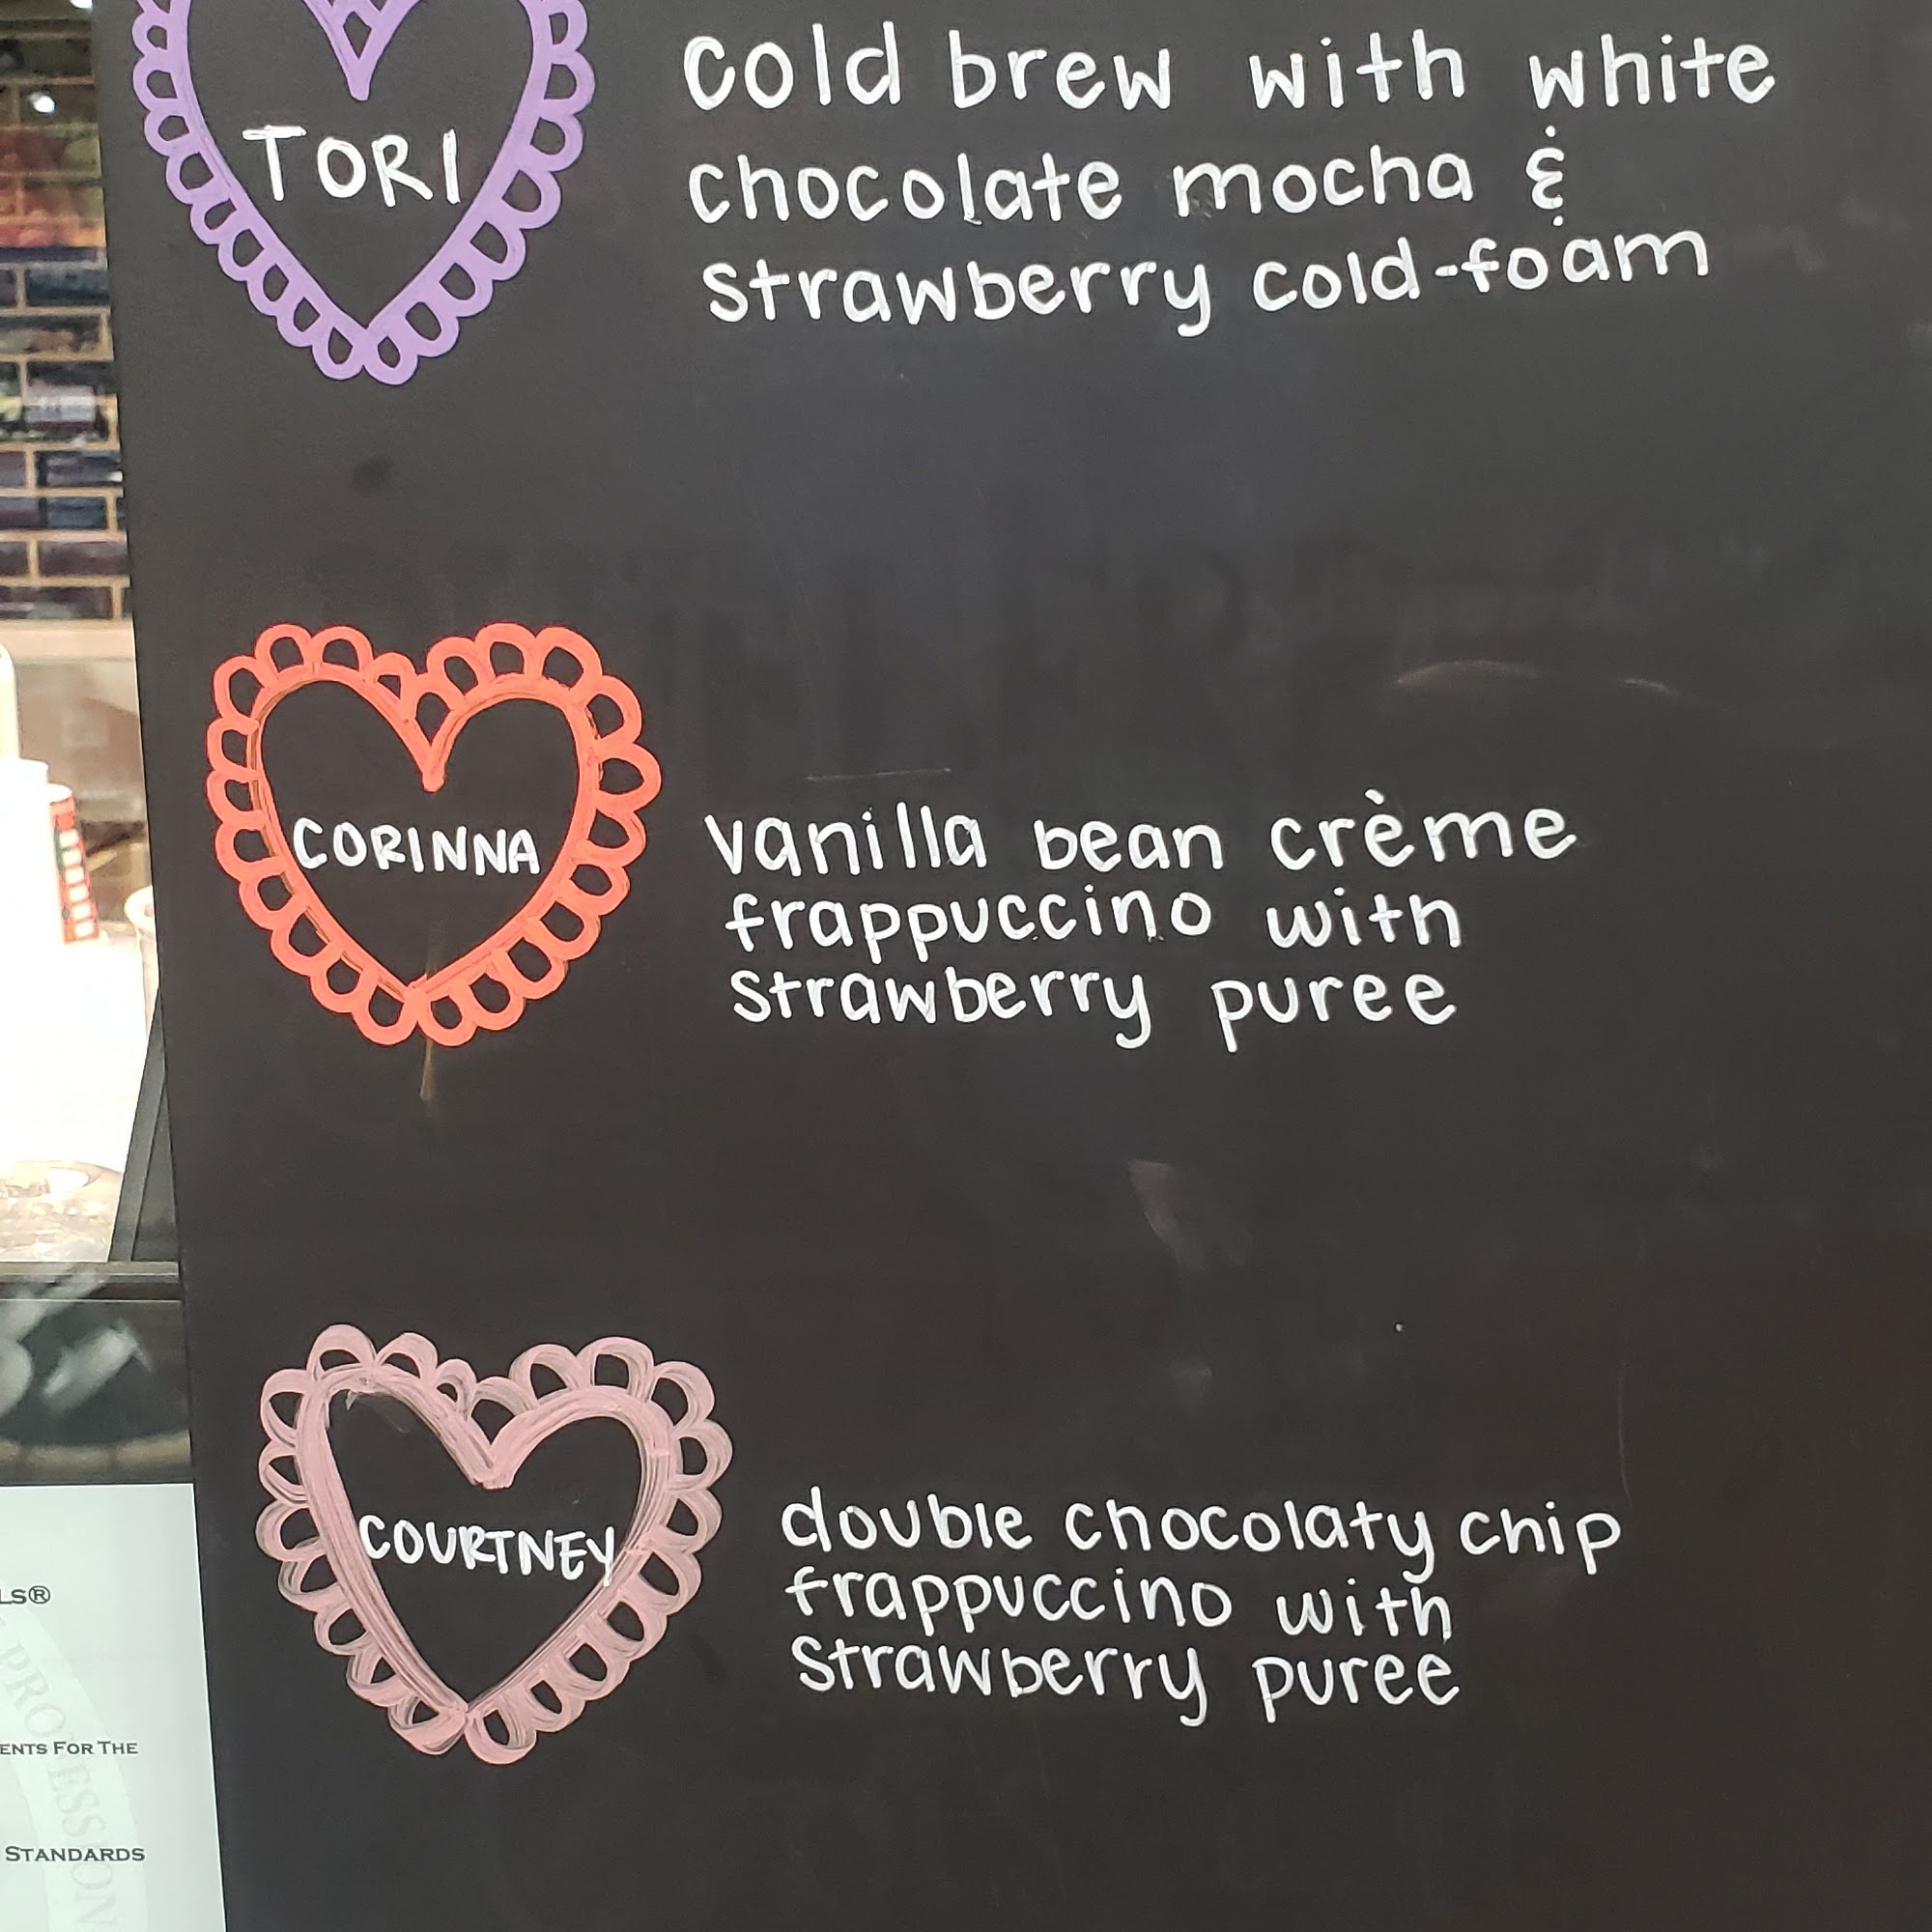 TORI
cold brew with white
chocolate mocha &
strawberry cold-foam
CORINNA
vanilla bean crème
frappuccino with
strawberry puree
COURTNEY
double chocolaty chip
frappuccino with
strawberry puree
LS®
ENTS FOR THE
STANDARDS